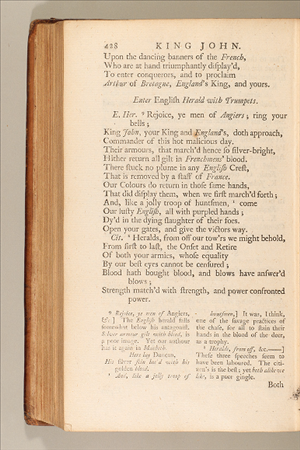 428 KING JOHN.
Upon the dancing banners of the French,
Who are at hand triumphantly display'd,
To enter conquerors, and to proclaim
Arthur of Bretagne, England's King, and yours.
Enter English Herald with Trumpets.
E. Her. Rejoice, ye men of Angiers, ring your
bells;
King John, your King and England's, doth approach,
Commander of this hot malicious day.
Their armours, that march'd hence so silver-bright,
Hither return all gilt in Frenchmens' blood.
There stuck no plume in any English Crest,
That is removed by a staff of France.
Our Colours do return in those same hands,
That did display them, when we first march'd forth;
And, like a jolly troop of huntsmen, come
Our lusty English, all with purpled hands;
Dy'd in the dying slaughter of their foes.
Open your gates, and give the victors way.
Cit. Heralds, from off our tow'rs we might behold,
From first to last, the Onset and Retire
Of both your armies, whose equality
By our best eyes cannot be censured;
Blood hath bought blood, and blows have answer'd
blows;
Strength match'd with strength, and power confronted
power.
Rejoice, ye men of Angiers,
&c.] The English herald falls
somewhat below his antagonist.
Silver armour gilt with blood, is
a poor image. Yet our author
has it again in Macbeth.
Here lay Duncan,
His silver skin lac'd with his
golden blood.
And, like a jolly troop of
huntsmen,] It was, I think,
one of the savage practices of
the chase, for all to stain their
hands in the blood of the deer,
as a trophy.
Heralds, from off, &c.—]
These three speeches seem to
have been laboured. The citizen's
is the best; yet both alike we
like, is a poor gingle.
Both